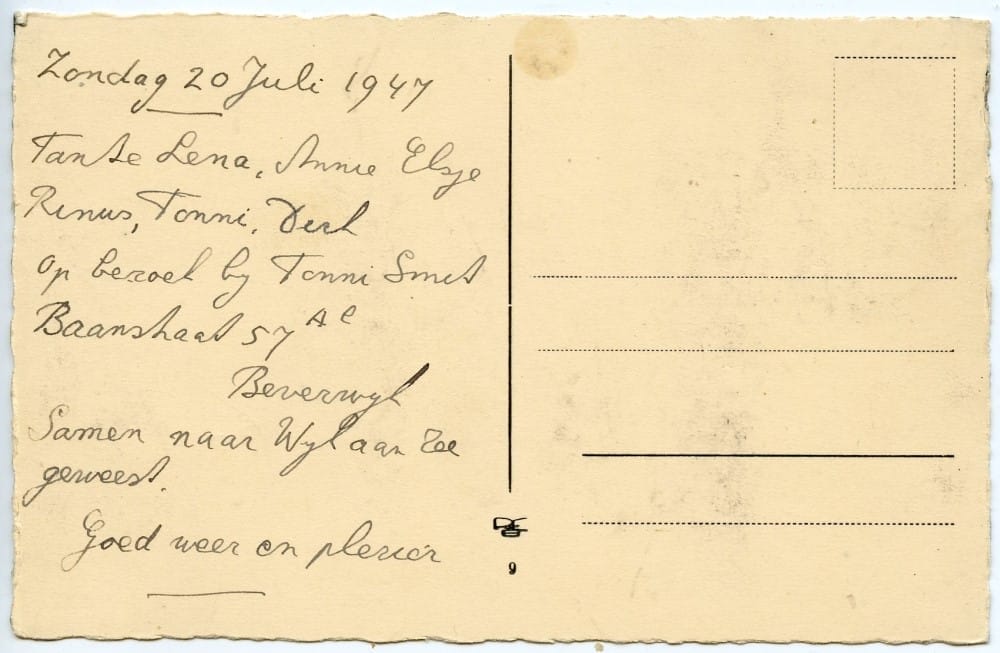 Zondag 20 Juli 1947
Tante Lena, Annie Elsje
Rinus, Tonni, Dirk
op bezoek by Tonni Smit
Baanstraat 57 A e
Beverwyk
Samen naar Wyk aan Zee
geweest.
Goed weer en plezier
9